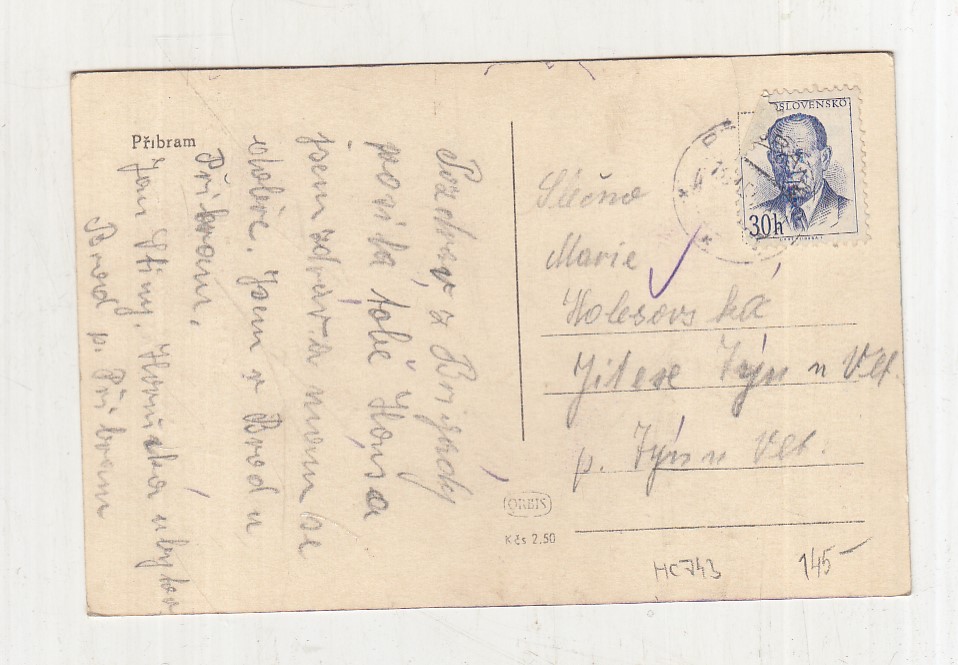 Příbram
Pozdrav z Brigády
posílá tobě Honsa
jsem zdráv a mám se
dobře. Jsem v Brod u
Příbrami.
Jan
Brod p. Příbram
Slečno
Marie
Holešovská
Týn n Vlt.
p. Týn n Vlt.
OSLOVENSKO
30h
ORBIS
Kčs 2,50
HC743
145-